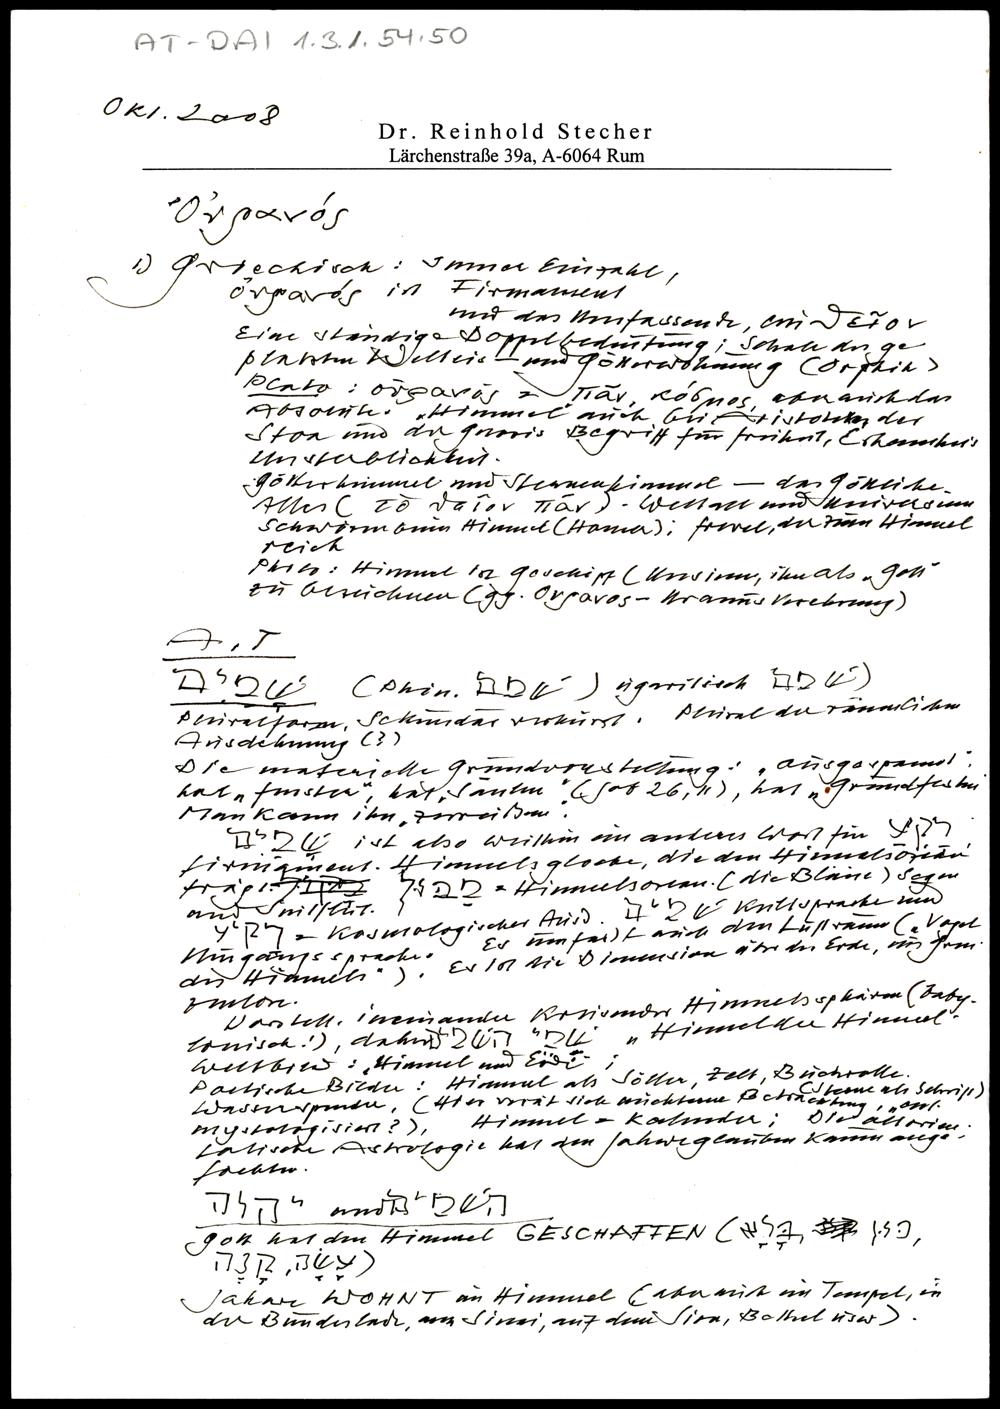 AT-DAI 1.3.1.54.50
Okt. 2008
Dr. Reinhold Stecher
Lärchenstraße 39a, A-6064 Rum
Οὐρανός
1) Griechisch: Immer Einzahl,
οὐρανός ist Firmament
und das Umfassende, ein θεῖον
Eine ständige Doppelbedeutung; Schale des ge
platzten Welteis – und Götterwohnung (Orphik)
Plato: οὐρανός = πᾶν, κόσμος, aber auch das
Absolute. "Himmel" auch bei Aristoteles, der
Stoa und der Gnosis Begriff für Freiheit, Erkenntnis
Unsterblichkeit.
Götterhimmel und Sternenhimmel – das Göttliche
Alles (τὸ θεῖον πᾶν) - Weltall und Universum
Schwören beim Himmel (Homer); Frevel, der zum Himmel
reich
Philo: Himmel ist Geschöpf (Unsinn, ihn als "Gott"
zu bezeichnen (gg. Οὐρανός – Uranus Verehrung)
A.T
שמים (Phön. שמם) ugaritisch שמם)
Pluralform, Sekundär verkürzt. Plural der räumlichen
Ausdehnung (?)
Die materielle Grundvorstellung: "ausgespannt".
hat "Fenster", hat "Säulen" (Job 26,11), hat "Grundfesten
Man kann ihn "zerreißen".
שמים ist also weithin ein anderes Wort für רקיע
Firmament. Himmelsglocke, die den Himmelsozean
trägt. = Himmelsozean. (die Bläue) Segen
und Sintflut.
רקיע = Kosmologischer Ausd. שמים Kultsprache und
Umgangssprache. Es umfaßt auch den Luftraum ("Vogel
des Himmels"). Es ist die Dimension über der Erde, ins Gren
zenlose.
Vorstell. ineinander kreisender Himmelssphären (baby-
lonisch!), daher שמי השמים "Himmel der Himmel".
Weltbild: "Himmel und Erde";
Poetische Bilder: Himmel als Söller, Zelt, Buchrolle.
(Sterne als Schrift)
Wasserspender, (Hier verät sich nüchterne Betrachtung, "ent
mythologisiert?), Himmel = Kalender; Die altorien-
talische Astrologie hat den Jahweglauben kaum ange-
fochten.
יהוה und השמים
Gott hat den Himmel GESCHAFFEN (ברא, כון,
עשה, קנה)
Jahwe WOHNT im Himmel (aber auch im Tempel, in
der Bundeslade, am Sinai, auf dem Sion, Bethel usw).